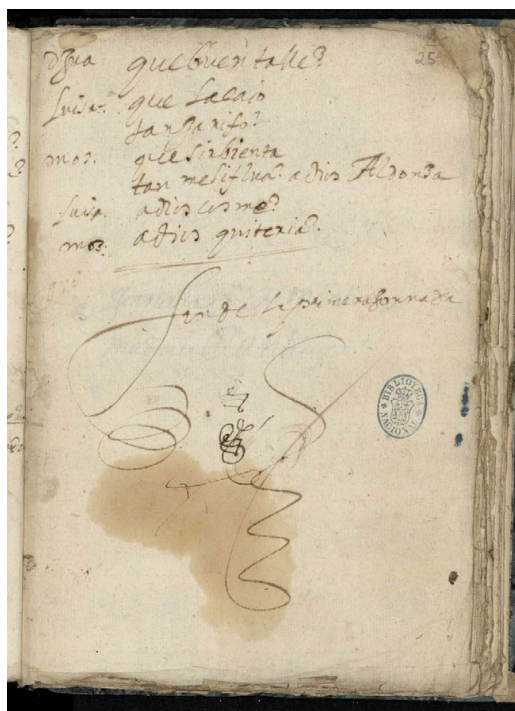 DJua que buen talle?
25
Luisa. que lacaio
tan zarifo?
mos. que sirbienta
tan meliflua. a dios Aldonza
Luisa. a dios cosme?
mos. a dios quiteria.
fin de la primera Jornada
BIBLIOTECA NACIONAL